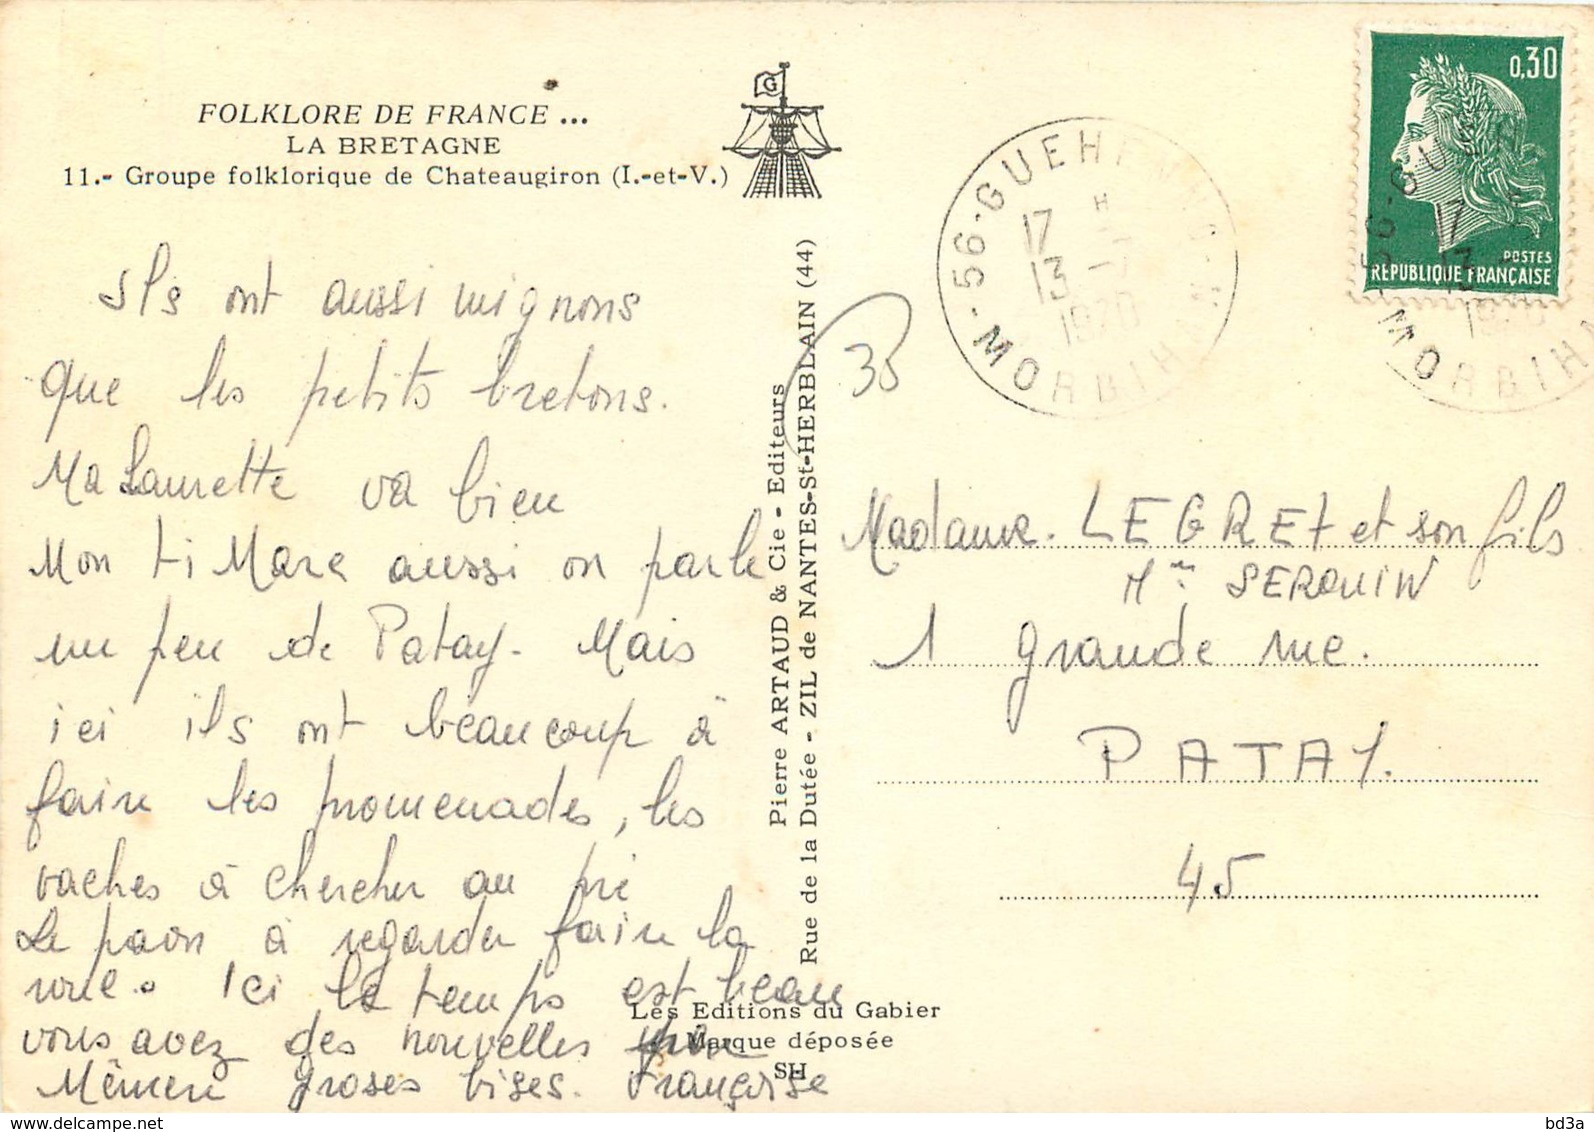 FOLKLORE DE FRANCE ...
LA BRETAGNE
11.- Groupe folklorique de Chateaugiron (I.-et-V.)
G
Ils ont aussi mignons
que les petits bretons.
Ma Laurette va bien
Mon ti Marc aussi on parle
un peu de Patay. Mais
ici ils ont beaucoup à
faire les promenades, les
vaches à chercher au pré
Le paon à regarder faire la
roue. Ici le temps est beau
vous avez des nouvelles par
Mémère groses bises. Françoise
Pierre ARTAUD & Cie - Editeurs
Rue de la Dutée - ZIL de NANTES-St-HERBLAIN (44)
Les Editions du Gabier
Marque déposée
SH
35
56-GUEHENNO
17 H
13 -7
1970
MORBIHAN
0,30
POSTES
REPUBLIQUE FRANÇAISE
56-GUEH
17
13
1970
MORBIHA
Madame. LEGRET et son fils
Mme SEROUIN
1 grande rue.
PATAY.
45
delcampe.net
bd3a